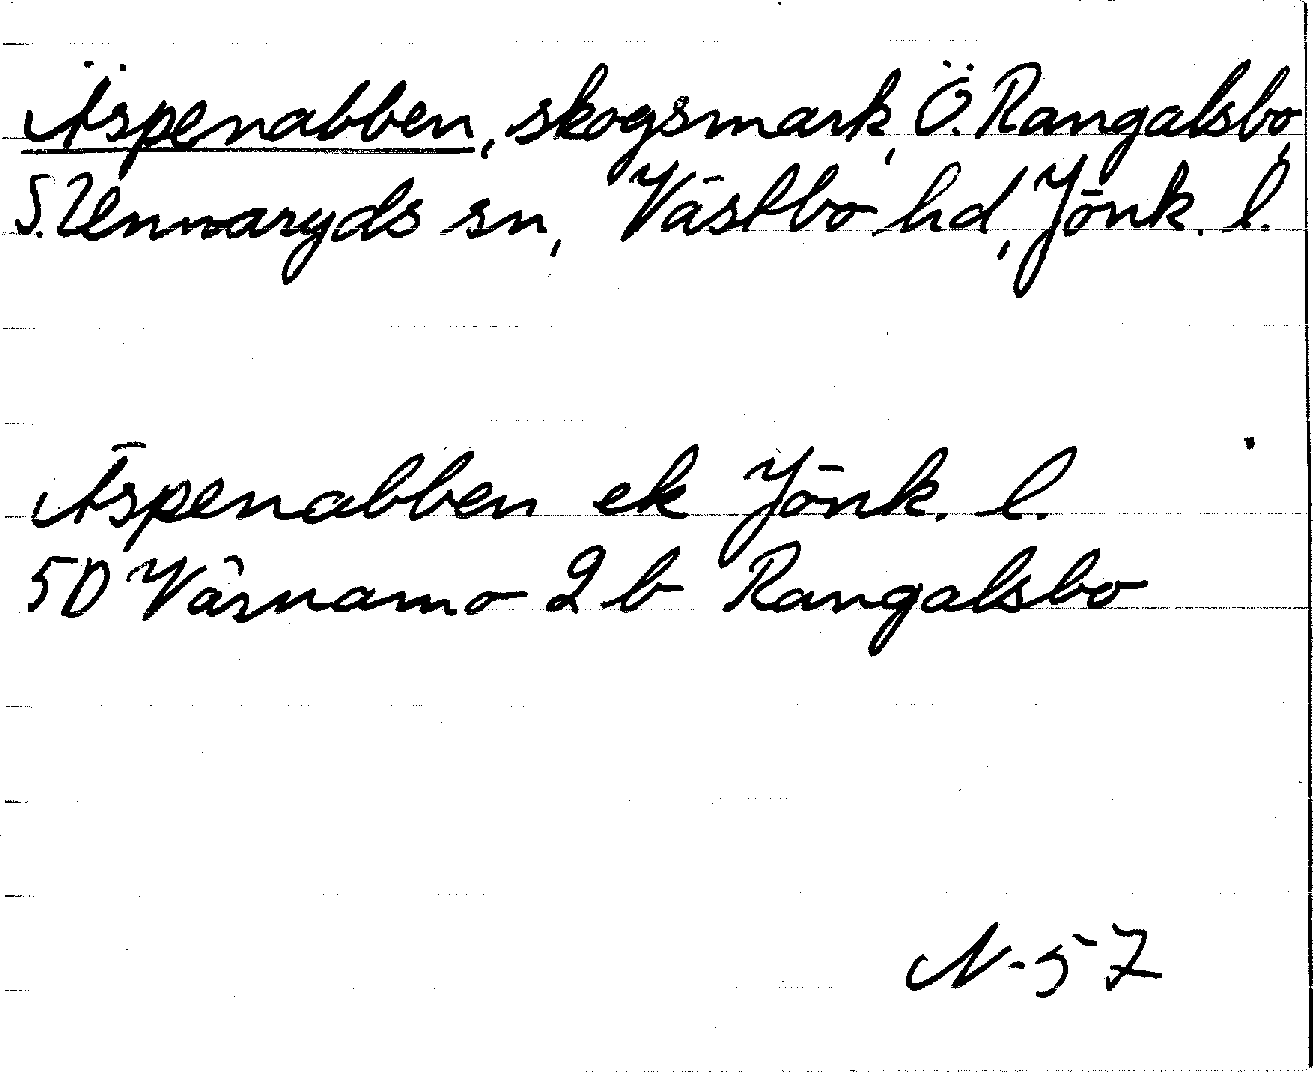 Äspenabben, skogsmark, Ö. Rangalsbo,
S. Unnaryds sn, Västbo hd, Jönk. l.
Äspenabben ek Jönk. l.
5D Värnamo 2 b Rangalsbo
N-57